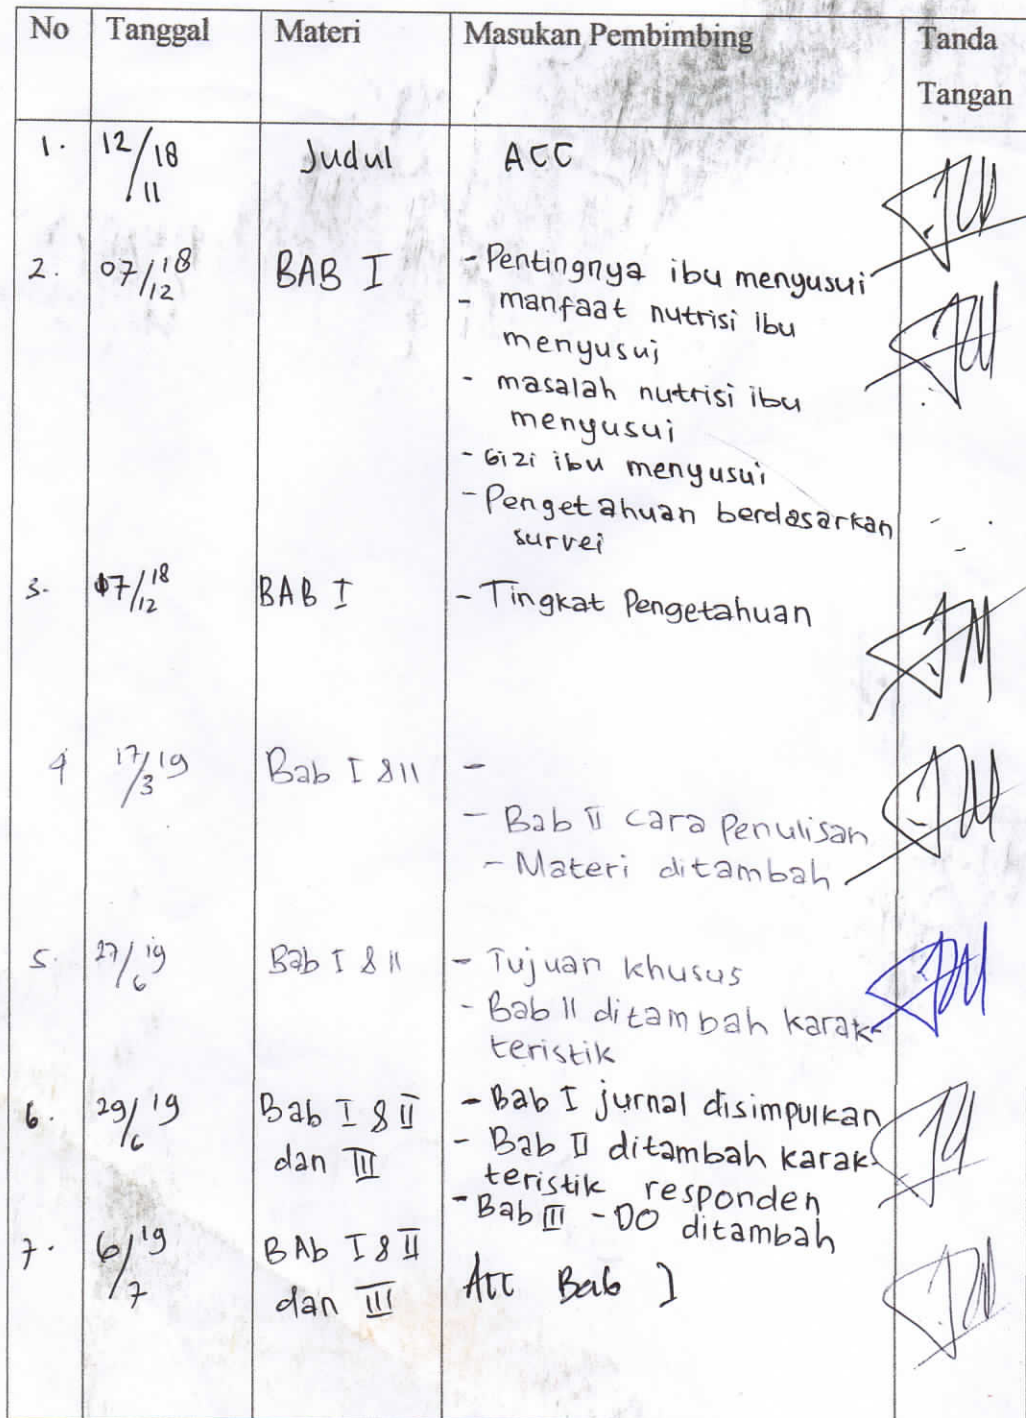 No Tanggal Materi Masukan Pembimbing Tanda
Tangan
1. 12/11 18 Judul ACC
2. 07/12 18 BAB I - Pentingnya ibu menyusui
- manfaat nutrisi ibu
menyusui
- masalah nutrisi ibu
menyusui
- Gizi ibu menyusui
- Pengetahuan berdasarkan
survei
3. 07/12 18 BAB I - Tingkat Pengetahuan
4 17/3 19 Bab I & II -
- Bab II cara Penulisan
- Materi ditambah
5. 27/6 19 Bab I & II - Tujuan khusus
- Bab II ditambah karak-
teristik
6. 29/6 19 Bab I & II - Bab I jurnal disimpulkan
dan III - Bab II ditambah karak-
teristik responden
- Bab III - DO ditambah
7. 6/7 19 BAb I & II Acc Bab I
dan III